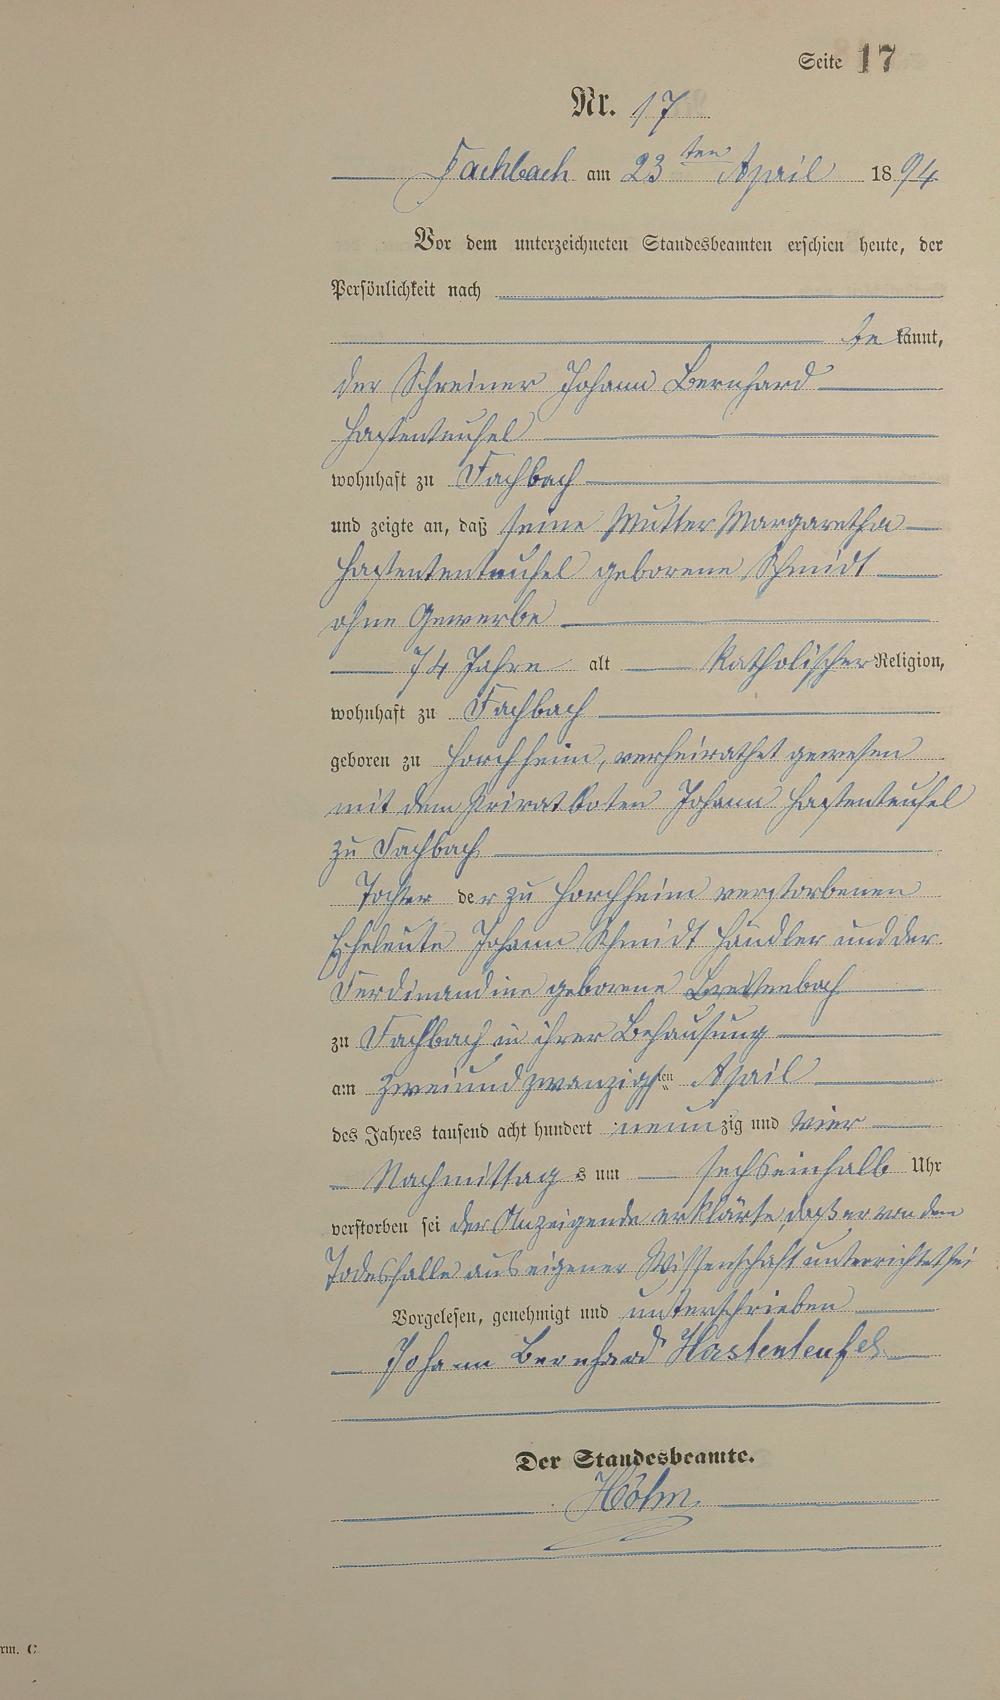 Seite 17
Nr. 17
Fachbach am 23ten April 1894
Vor dem unterzeichneten Standesbeamten erschien heute, der
Persönlichkeit nach
be kannt,
der Schreiner Johann Bernhard
Hastenteufel
wohnhaft zu Fachbach
und zeigte an, daß seine Mutter Margaretha
Hastententeufel geborene Schmidt
ohne Gewerbe
74 Jahre alt Katholischer Religion,
wohnhaft zu Fachbach
geboren zu Horchheim, verheirathet gewesen
mit dem Privatboten Johann Hastenteufel
zu Fachbach
Tochter der zu Horchheim verstorbenen
Eheleute Johann Schmidt Händler und der
Ferdinandine geborene Breitenbach
zu Fachbach in ihrer Behausung
am zweiundzwanzigsten April
des Jahres tausend acht hundert neunzig und vier
Nachmittags um sechseinhalb Uhr
verstorben sei der Anzeigende erklärte, daß er von dem
Todesfalle aus eigener Wissenschaft unterrichtet sei
Vorgelesen, genehmigt und unterschrieben
Johann Bernhard Hastenteufel
Der Standesbeamte.
Höhn
rm. C